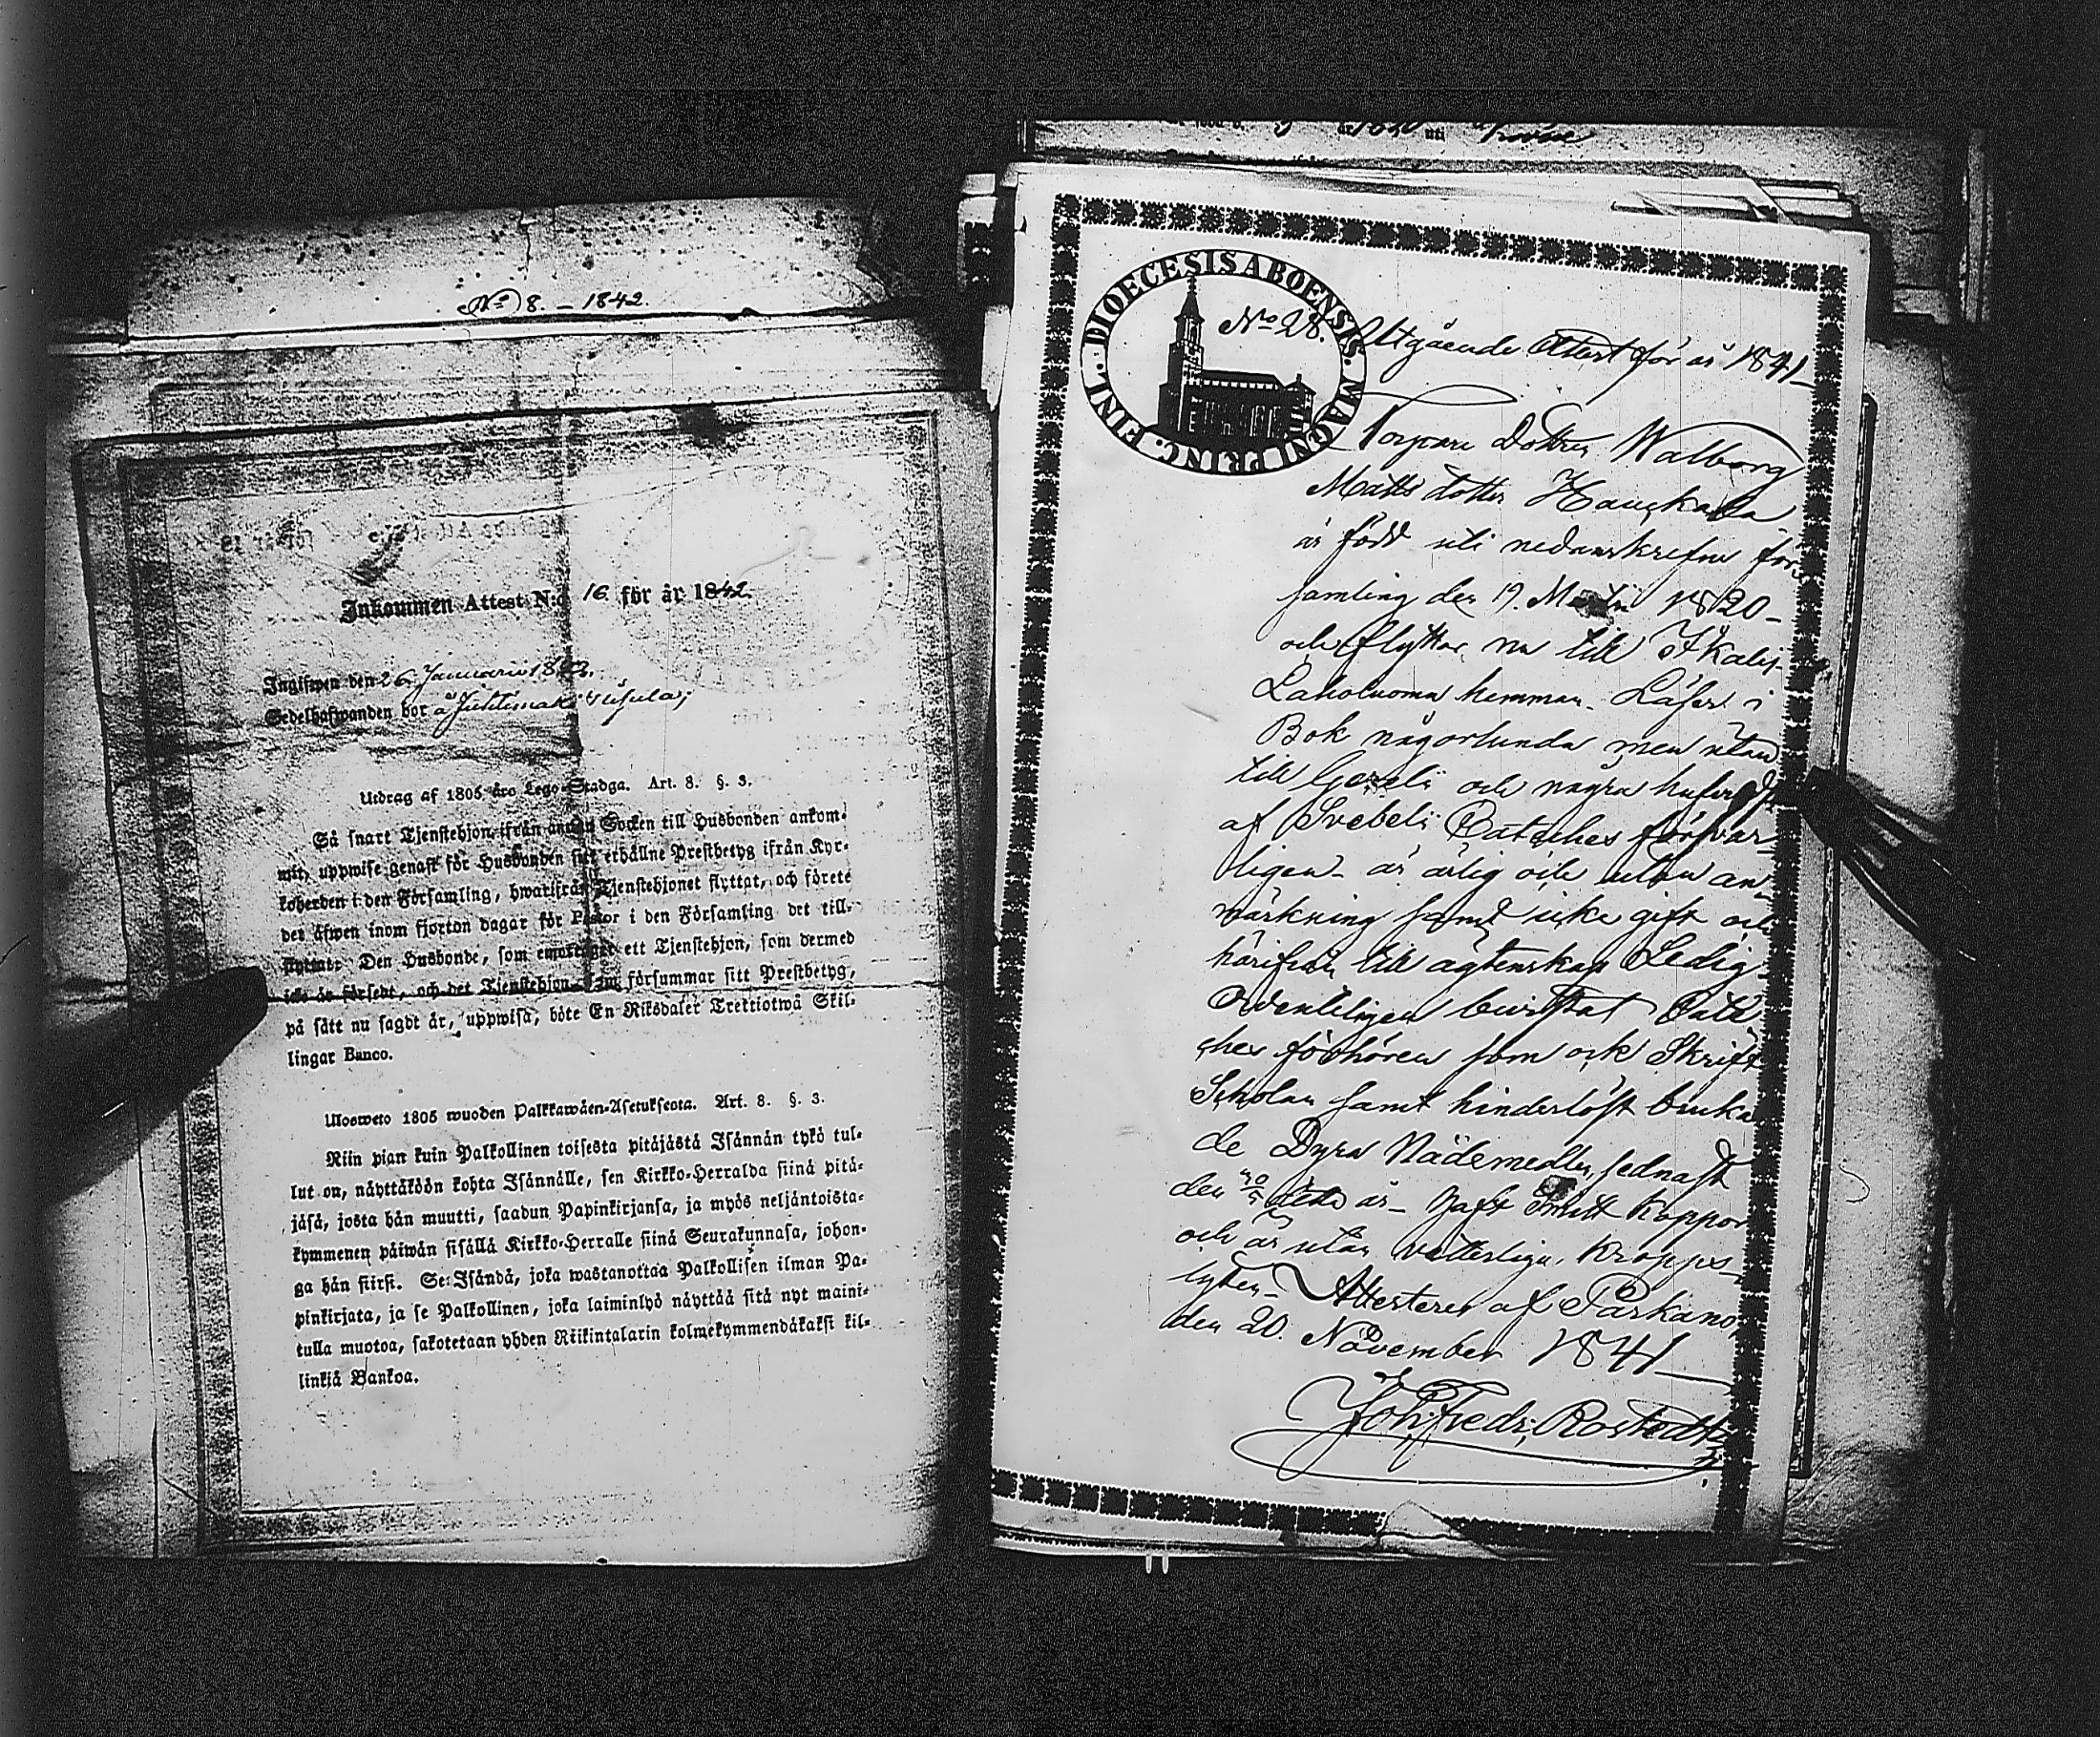 No 8. – 1842.
Inkommen Attest N:o 16 för år 1842.
Ingifwen den 26 Januarii 1842.
Sedelhafwanden bor å
Utdrag af 1805 års Lego-Stadga. Art. 8. §. 3.
Så snart Tjenstehjon ifrån annan Socken till Husbonden ankom-
mit, uppwise genast för Husbonden sitt erhållne Prestbetyg ifrån Kyr-
koherden i den Församling, hwarifrån Tjenstehjonet flyttat, och förete
det äfwen inom fjorton dagar för Pastor i den Församling det till-
flyttat. Den Husbonde, som emottager ett Tjenstehjon, som dermed
icke är försedt, och det Tjenstehjon som försummar sitt Prestbetyg,
på sätt nu sagdt är, uppwisa, böte En Riksdaler Trettiotwå Skil-
lingar Banco.
Ulosweto 1805 wuoden Palkkawäen-Asetuksesta. Art. 8. §. 3.
Niin pian kuin Palkollinen toisesta pitäjästä Isännän tykö tul-
lut on, näyttäköön kohta Isännälle, sen Kirkko-Herralda siinä pitä-
jäsä, josta hän muutti, saadun Papinkirjansa, ja myös neljäntoista-
kymmenen päiwän sisällä Kirkko-Herralle siinä Seurakunnasa, johon-
ga hän siirsi. Se Isändä, joka wastanottaa Palkollisen ilman Pa-
pinkirjata, ja se Palkollinen, joka laiminlyö näyttää sitä nyt maini-
tulla muotoa, sakotetaan yhden Riikintalarin kolmekymmendäkaksi kil-
linkiä Bankoa.
uti
DIOECESIS ABOENSIS. MAGNI PRINC. FINL.
No 28. Utgående Attest för år 1841–
Torpare Dottren Walborg
Matts dotter Hauckala
är född uti nedanskrefne för-
samling den 19. Martii 1820–
och flyttar nu till Ikalis
Laholuoma hemman. Läser i
Bok någorlunda men utan
till Gezelii och några hufvudst
af Svebelii Cateches försvar-
ligen – är ärlig och utan an-
märkning samt icke gift och
härifrån till ägtenskap Ledig–
Ordentligen bevistat Cate-
ches förhören som ock Skrift
Scholan samt hinderlöst bruka
de Dyra Nådemedlen, sednast
den detta år – haft Koppor
och är utan vetterliga kropps-
lyten – Attesteres af Parkano
den 20. November 1841–
Joh. Fredr. Rostedt